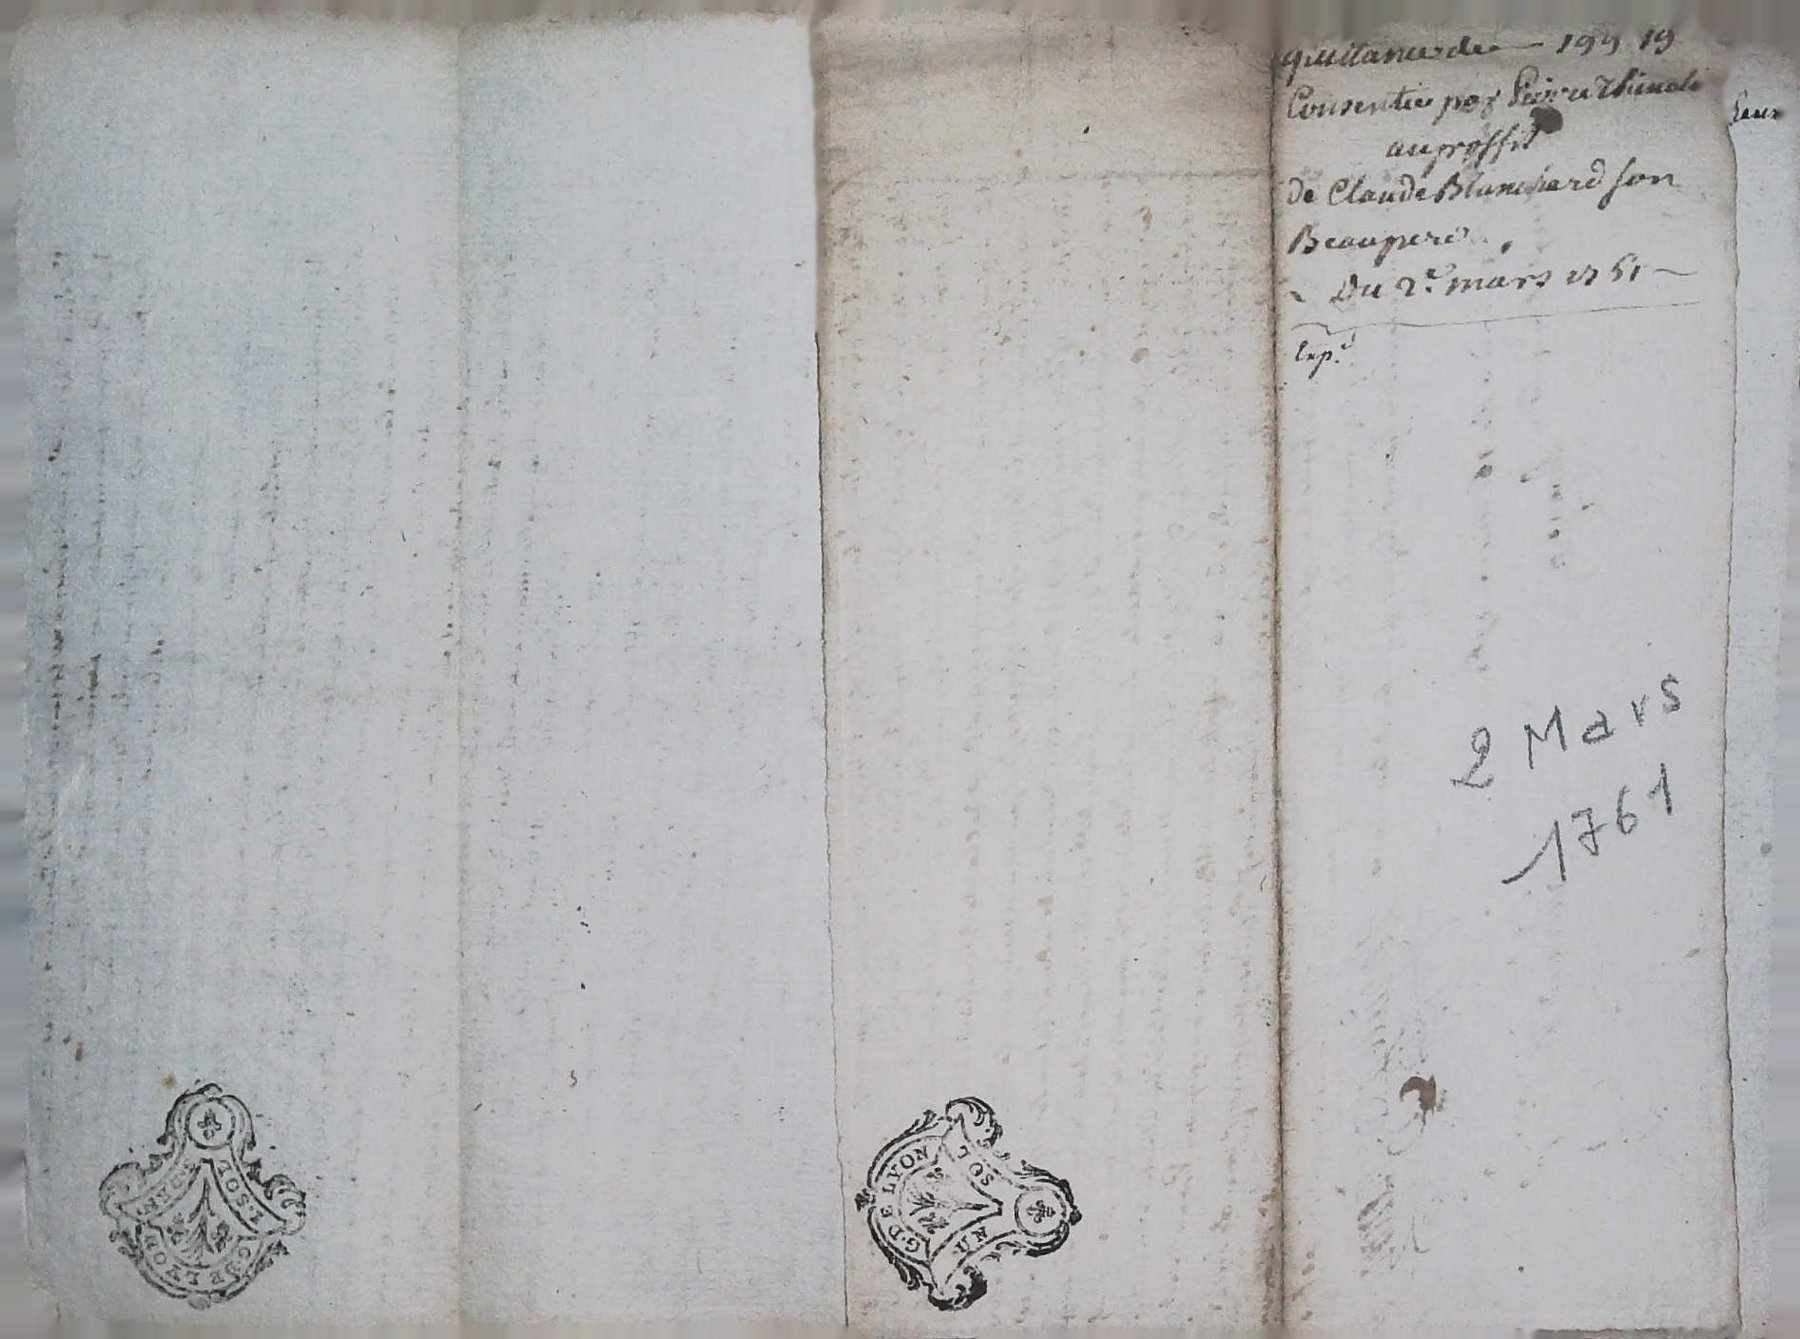 quittance de — 199 19
Consentie par Pierre
au proffit
de Claude Blanchard son
Beaupere
Du 2e mars 1761
Exp.e
2 Mars
1761
G. DE LYON
UN SOL
G. DE LYON
SOL